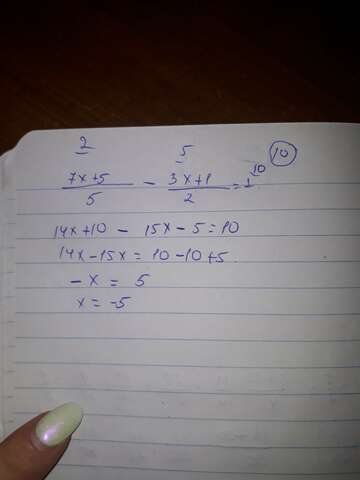 2 5 10 10
7x+5/5 - 3x+1/2 = 1
14x+10 - 15x-5=10
14x-15x = 10-10+5
-x = 5
x = -5